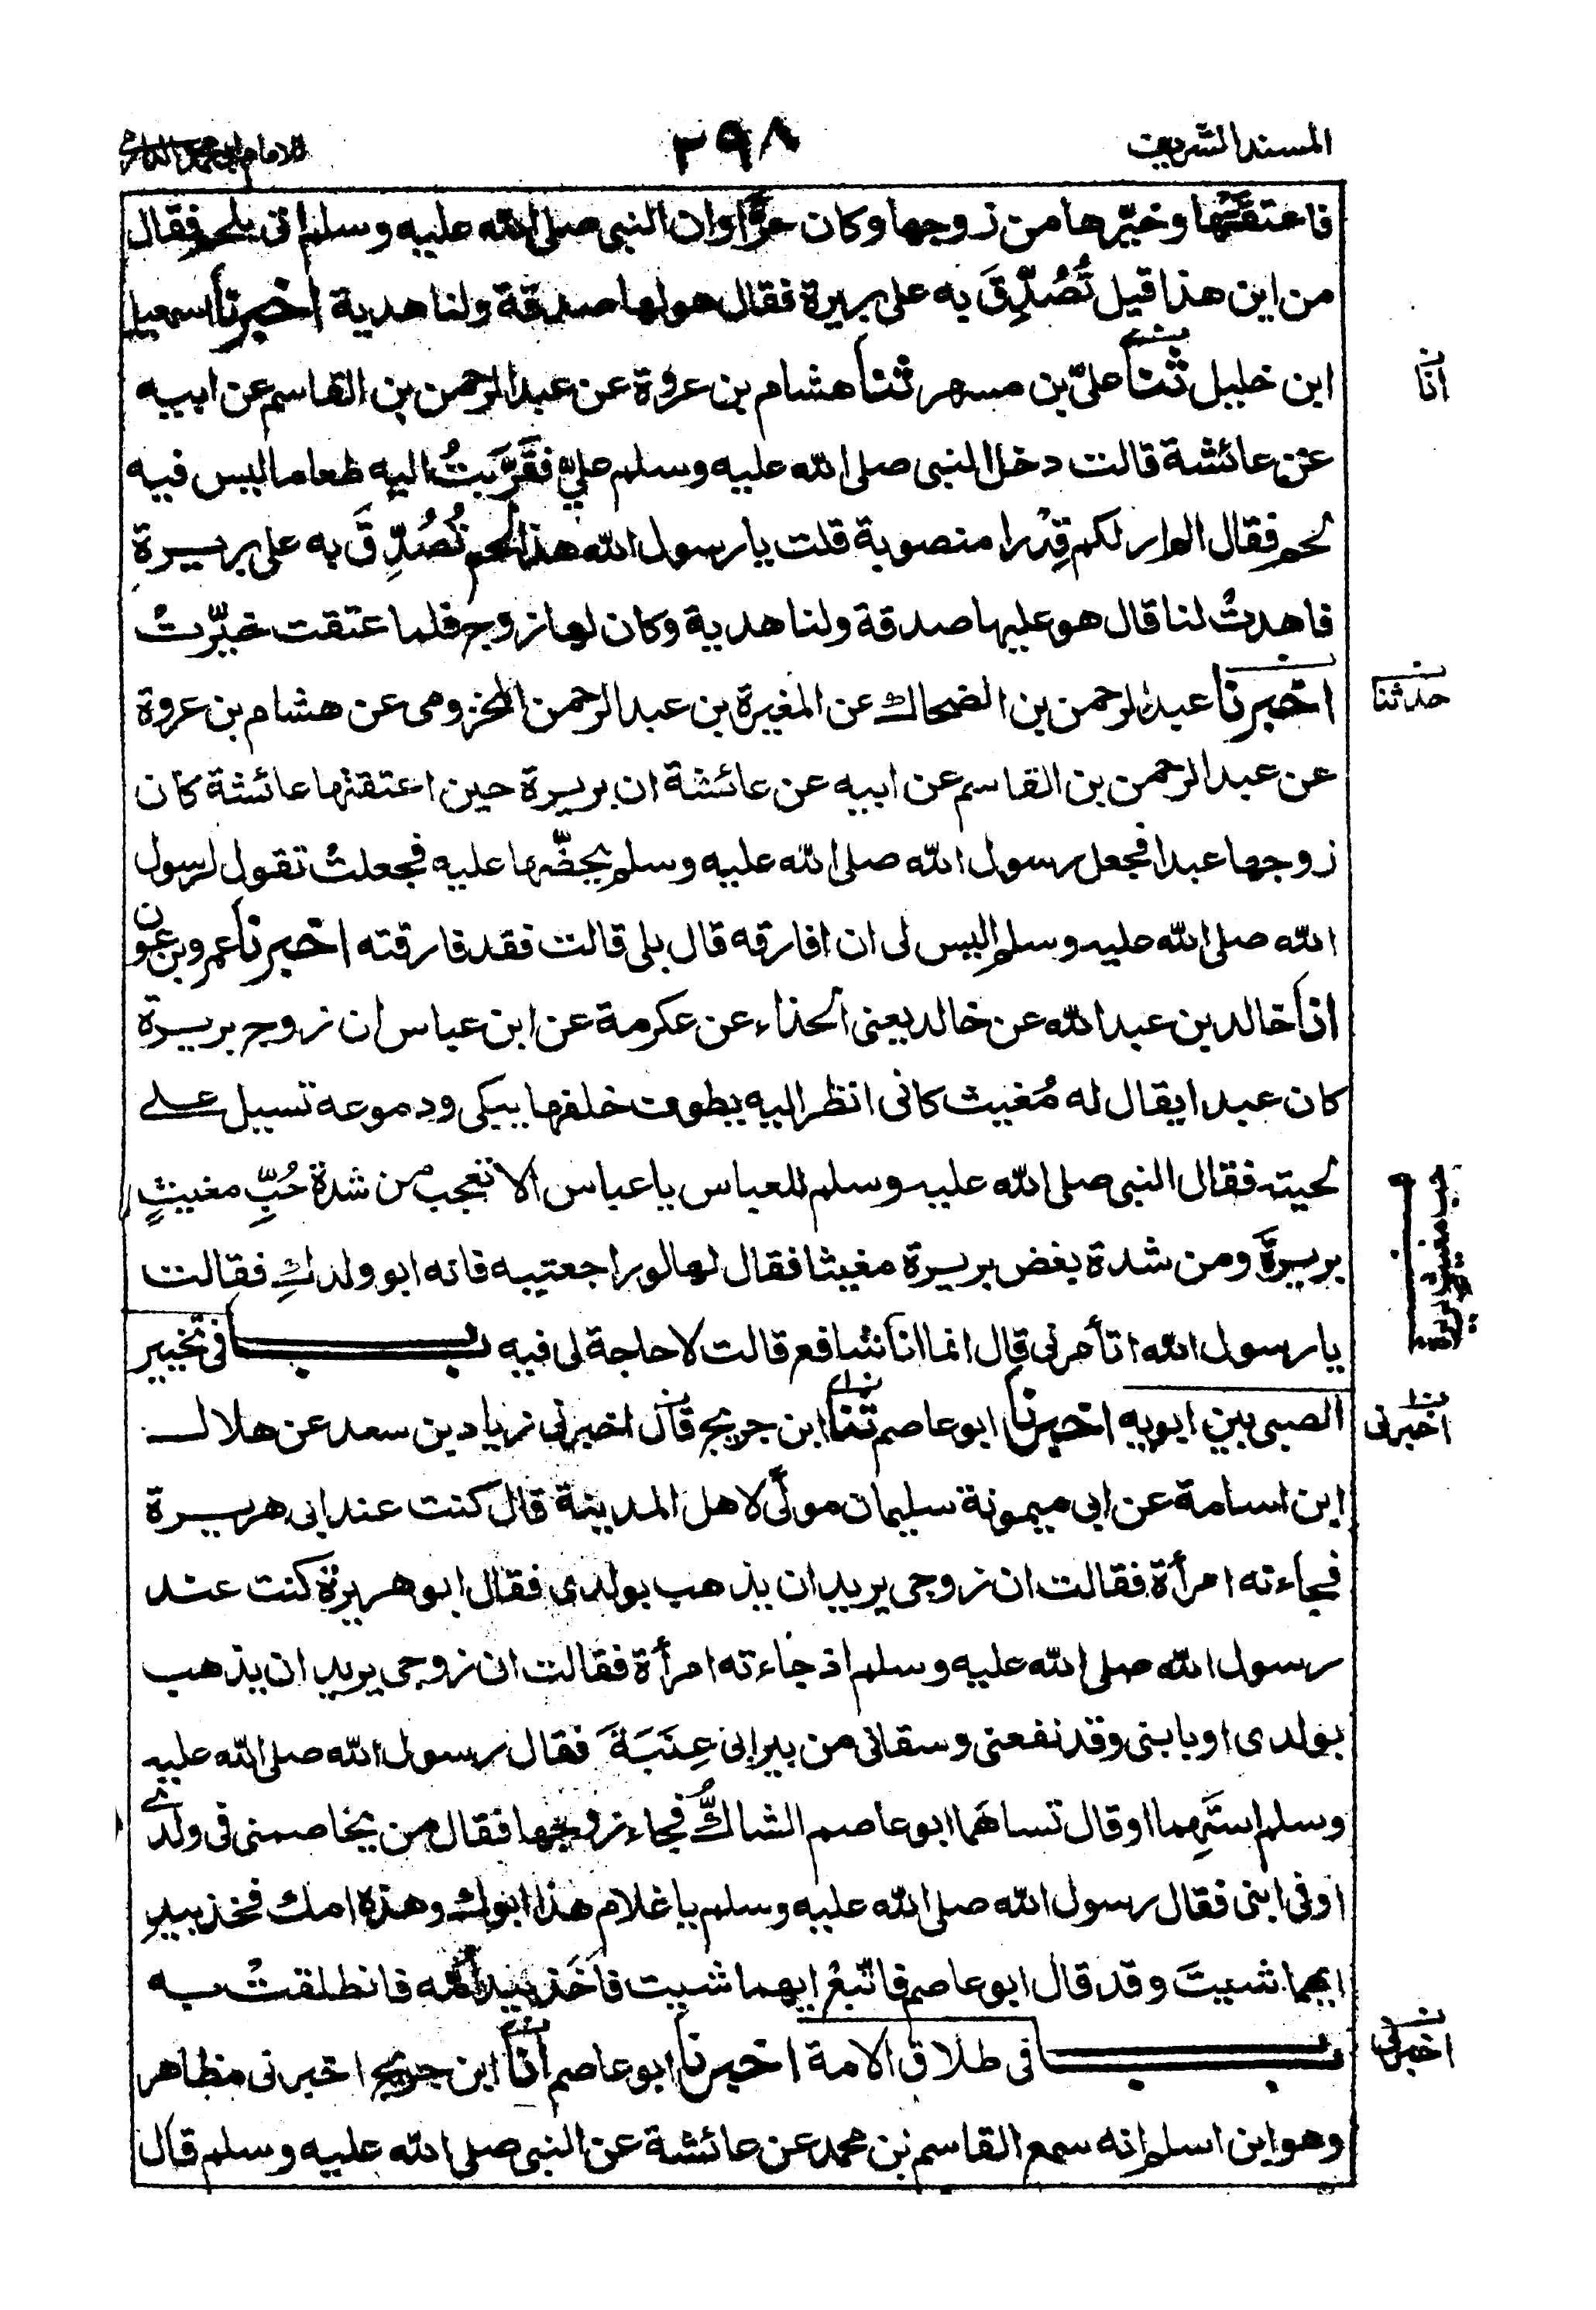 المسند الشريف
٢٩٨
للامام ابي محمد الدارمي
فاعتقتها وخيّرها من زوجها وكان حرًّا وان النبى صلى الله عليه وسلم اتى بلحم فقال
من اين هذا قيل تُصُدِّقَ به على بريرة فقال هو لها صدقة ولنا هدية اخبرنا اسمعيل
ابن خليل ثنا علىّ بن مسهر ثنا هشام بن عروة عن عبد الرحمن بن القاسم عن ابيه
انا
عن عائشة قالت دخل النبى صلى الله عليه وسلم علىّ فقَرَّبتُ اليه طعاما ليس فيه
لحم فقال الم ار لكم قِدْرا منصوبة قلت يا رسول الله هذا لحم تُصُدِّقَ به على بريرة
فاهدتْ لنا قال هو عليها صدقة ولنا هدية وكان لها زوج فلما عتقت خيّرت
اخبرنا عبد الرحمن بن الضحاك عن المغيرة بن عبد الرحمن المخزومى عن هشام بن عروة
حدثنا
عن عبد الرحمن بن القاسم عن ابيه عن عائشة ان بريرة حين اعتقتها عائشة كان
زوجها عبدا فجعل رسول الله صلى الله عليه وسلم يحضّها عليه فجعلتْ تقول لرسول
الله صلى الله عليه وسلم اليس لى ان افارقه قال بلى قالت فقد فارقته اخبرنا عمرو بن عون
انا خالد بن عبد الله عن خالد يعنى الحذاء عن عكرمة عن ابن عباس ان زوج بريرة
كان عبدا يقال له مُغيث كانى انظر اليه يطوف خلفها يبكى ودموعه تسيل على
لحيته فقال النبى صلى الله عليه وسلم للعباس يا عباس الا تعجب من شدة حُبِّ مغيثٍ
بريرةَ ومن شدة بغض بريرة مغيثا فقال لها لو راجعتيه فانه ابو ولدكِ فقالت
يا رسول الله اتأمرنى قال انما انا شافع قالت لا حاجة لى فيه باب فى تخيير
الصبى بين ابويه اخبرنا ابو عاصم ثنا ابن جريج قال اخبرنى زياد بن سعد عن هلال
اخبرنى
ابن اسامة عن ابى ميمونة سليمان مولًى لاهل المدينة قال كنت عند ابى هريرة
فجاءته امرأة فقالت ان زوجى يريد ان يذهب بولدى فقال ابو هريرة كنت عند
رسول الله صلى الله عليه وسلم اذ جاءته امرأة فقالت ان زوجى يريد ان يذهب
بولدى او بابنى وقد نفعنى وسقانى من بير ابى عِنَبَةَ فقال رسول الله صلى الله عليه
وسلم استَهِما او قال تساهَما ابو عاصم الشاكُّ فجاء زوجها فقال من يخاصمنى فى ولدى
او فى ابنى فقال رسول الله صلى الله عليه وسلم يا غلام هذا ابوك وهذه امك فخذ بيد
ايهما شيتَ وقد قال ابو عاصم فاتّبعْ ايهما شيت فاخَذ بيد امّه فانطلقتْ به
باب فى طلاق الامة اخبرنا ابو عاصم انا ابن جريج اخبرنى مظاهر
اخبرنى
وهو ابن اسلم انه سمع القاسم بن محمد عن عائشة عن النبى صلى الله عليه وسلم قال